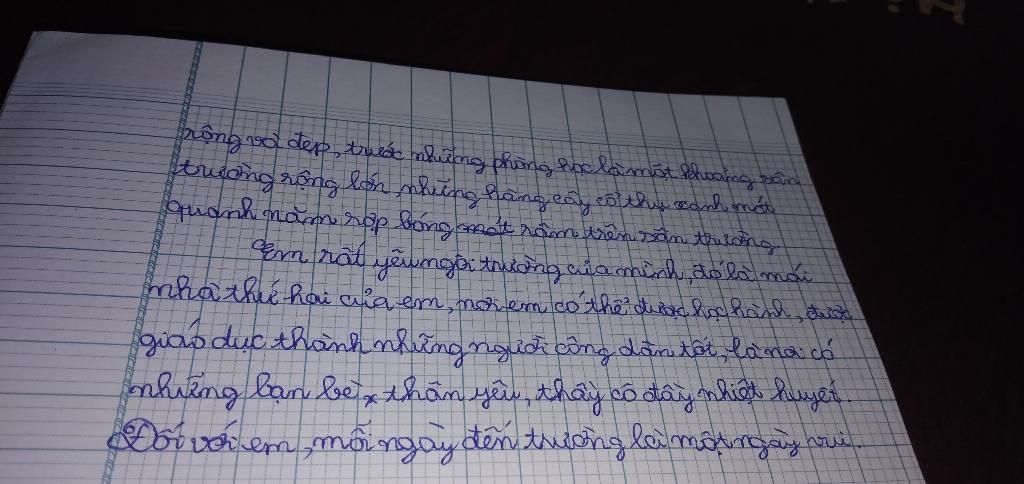 rộng và đẹp, trước những phòng học là một khoảng sân
trường rộng lớn, những hàng cây cổ thụ xanh mát
quanh năm rợp bóng mát nằm trên sân trường
Em rất yêu ngôi trường của mình, đó là mái
nhà thứ hai của em, nơi em có thể được học hành, được
giáo dục thành những người công dân tốt, là nơi có
những bạn bè thân yêu, thầy cô đầy nhiệt huyết.
Đối với em, mỗi ngày đến trường là một ngày vui.